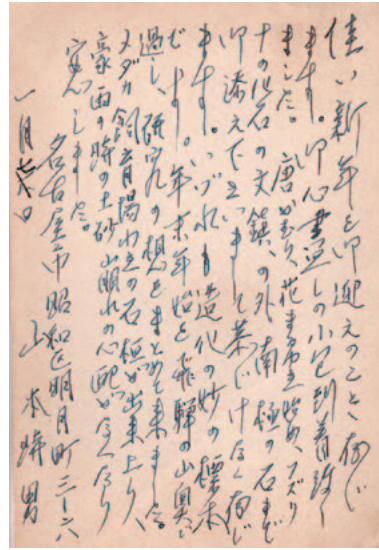 佳い新年を御迎えのことゝ存じ
ます。御心尽しの小包到着致し
ました。唐かぶり、花まき　始め、フズリ
ナの化石の文鎮、の外南極の石まで
御添え下さいまして忝じけなく存じ
ます。いづれも造化の妙の標本
です。年末年始を飛騨の山奥で
過し、研究の想をまとめて来ました。
メダカ飼育場わきの石垣が出来上り、
豪雨の時の土砂山崩れの心配がなくなり
安心しました。
一月　日
名古屋市昭和区明月町三ー六
山本時男